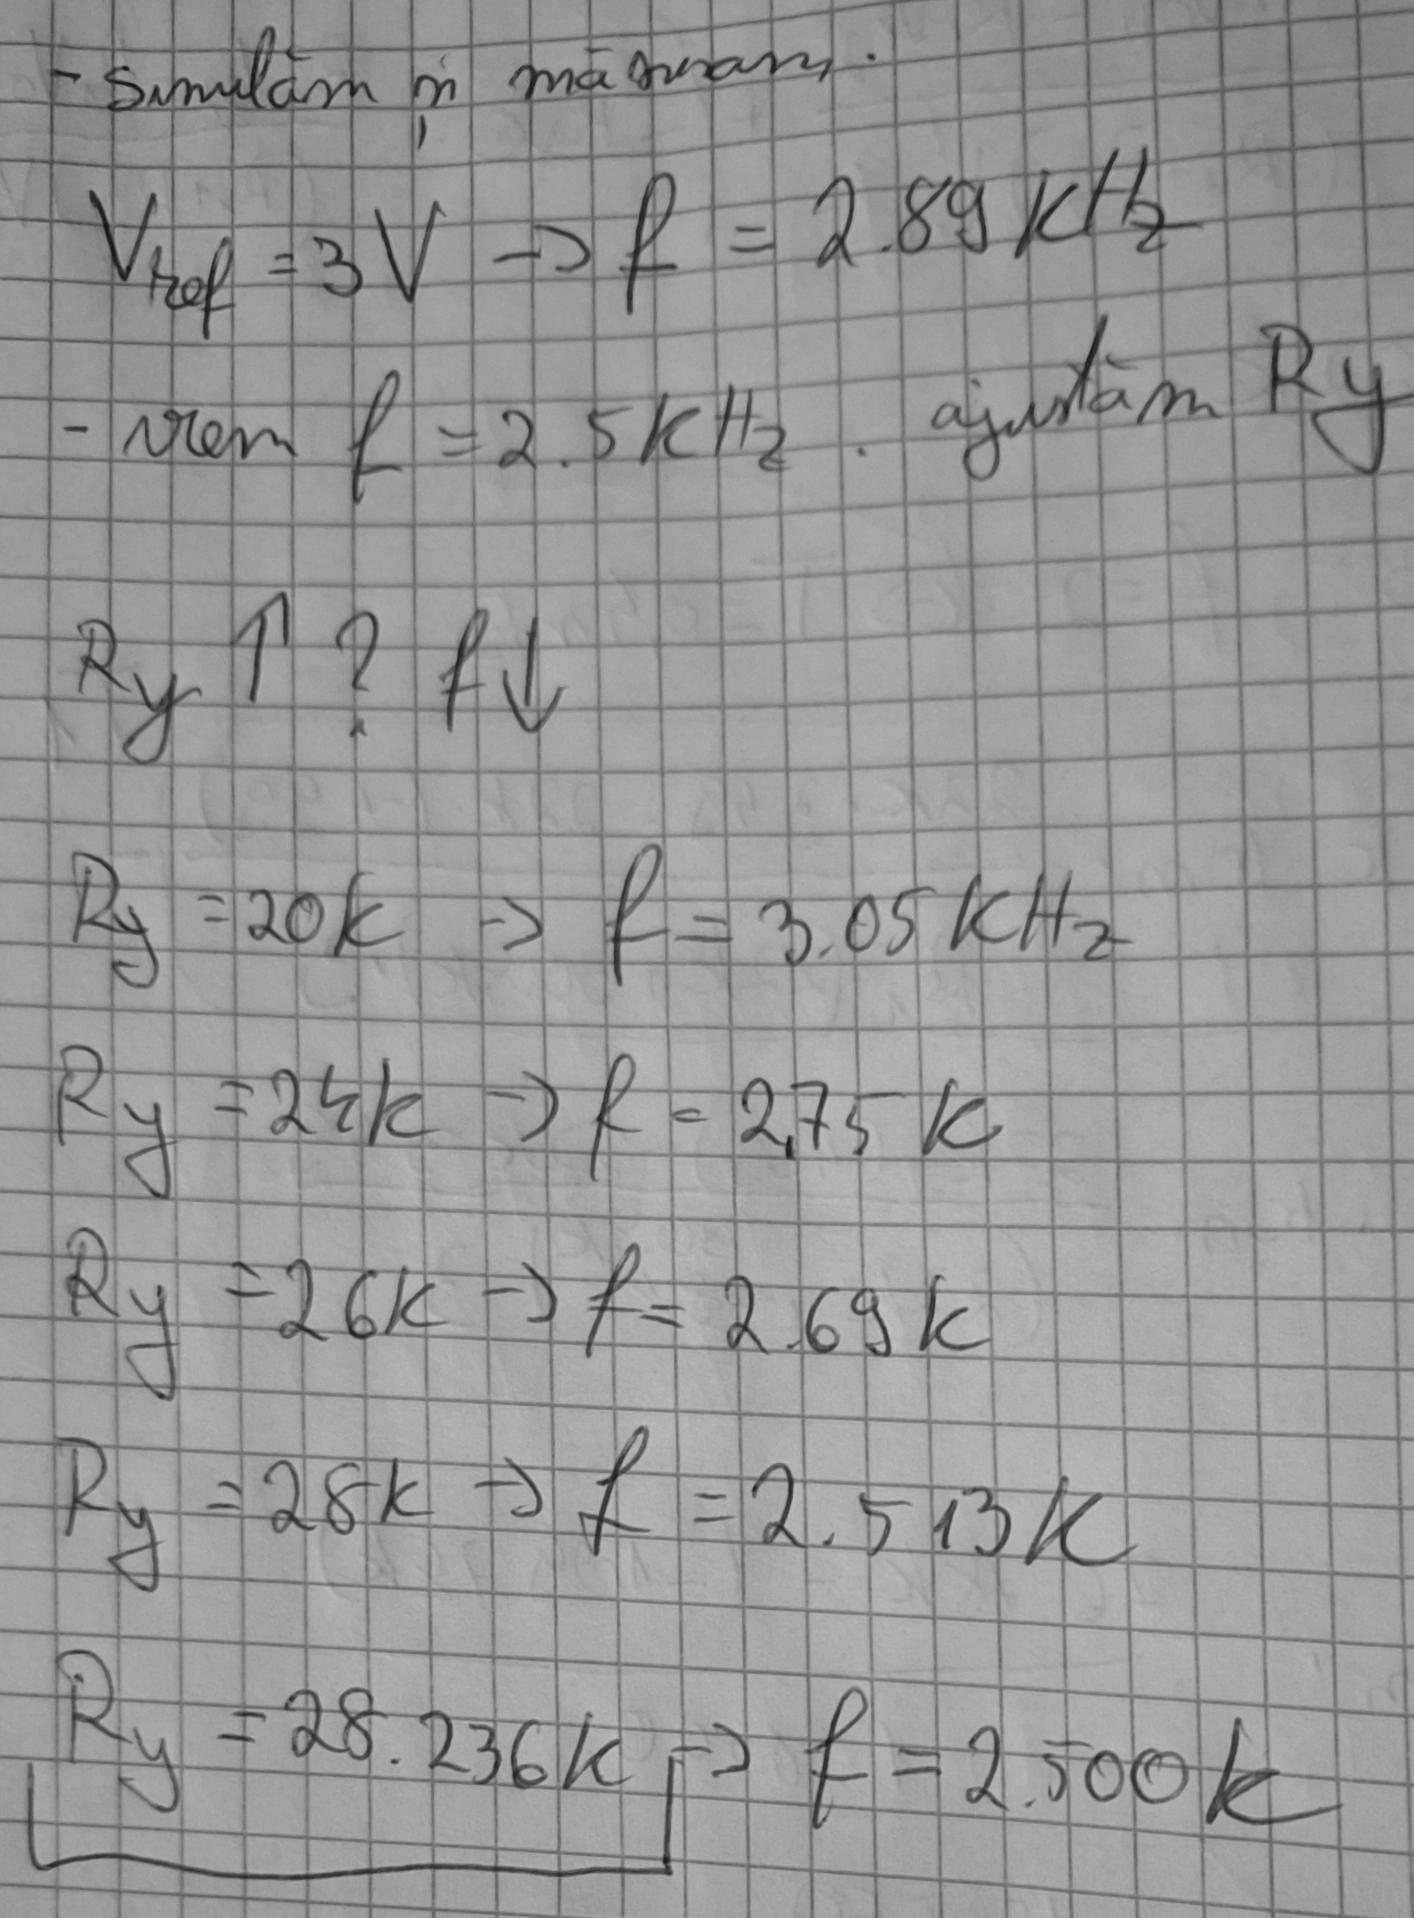 - simulăm și măsurăm.
Vref = 3V -> f = 2.89 KHz
- vrem f = 2.5KHz. ajustăm Ry
Ry ↑ ? f↓
Ry = 20k -> f = 3.05 KHz
Ry = 24k -> f = 2,75 K
Ry = 26k -> f = 2.69 k
Ry = 28k -> f = 2.513K
Ry = 28.236k -> f = 2.500k